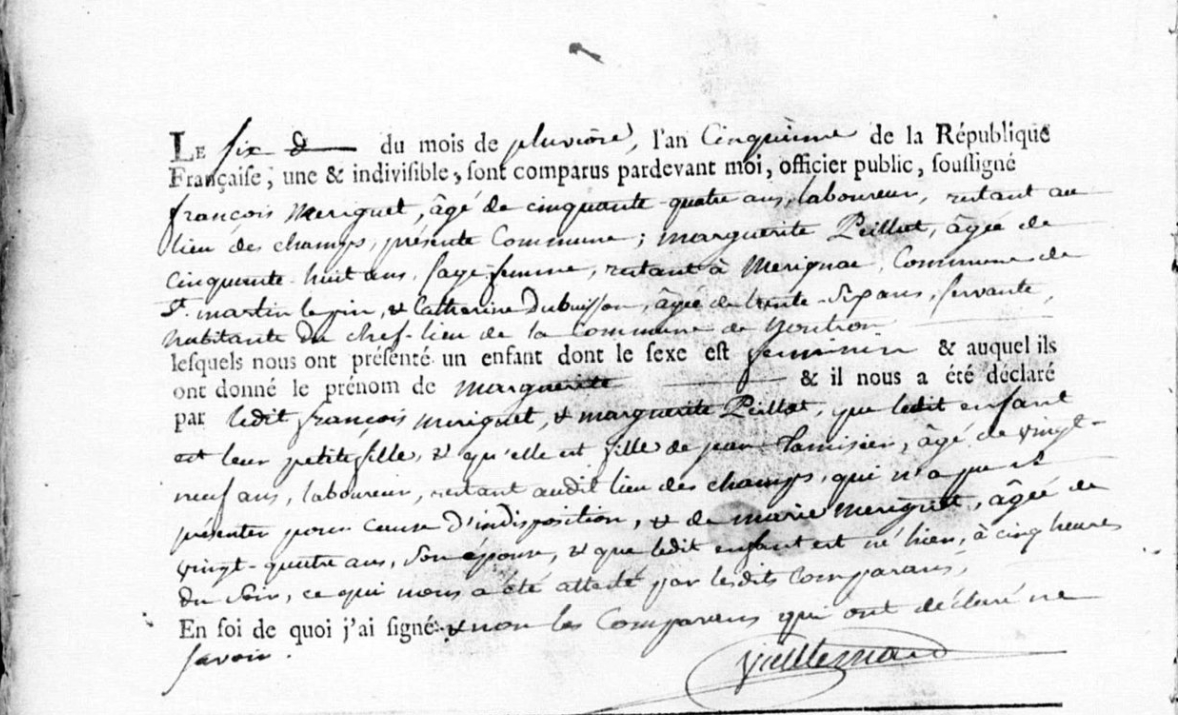 LE six du mois de pluviôse, l'an Cinquième de la République
Française, une & indivisible, sont comparus pardevant moi, officier public, soussigné
françois Meriguet, âgé de cinquante-quatre ans, laboureur, restant au
lieu des champs, présente Commune ; marguerite Peillot, âgée de
cinquante-huit ans, sage-femme, restant à Merignac, Commune de
St. martin lepin, & Catherine Dubuisson, âgée de trente-six ans, servante,
habitante du chef-lieu de la Commune de Nontron
lesquels nous ont présenté un enfant dont le sexe est feminin & auquel ils
ont donné le prénom de marguerite & il nous a été déclaré
par ledit françois Meriguet, & marguerite Peillot, que ledit enfant
est leur petite fille, & qu'elle est fille de jean Lamisien, âgé de vingt-
neuf ans, laboureur, restant audit lieu des champs, qui n'a pu se
présenter pour cause d'indisposition, & de marie Meriguet, âgée de
vingt-quatre ans, Son épouse, & que ledit enfant est né hier, à cinq heures
du Soir, ce qui nous a été attesté par lesdits Comparans,
En foi de quoi j'ai signé & non les Comparens qui ont déclaré ne
Savoir.